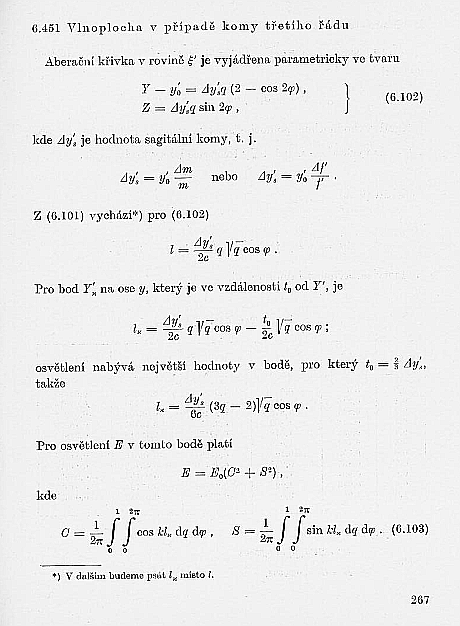 6.451 Vlnoplocha v případě komy třetího řádu
Aberační křivka v rovině ξ′ je vyjádřena parametricky ve tvaru
Y − y′₀ = Δy′ₛq (2 − cos 2φ) ,
Z = Δy′ₛq sin 2φ , } (6.102)
kde Δy′ₛ je hodnota sagitální komy, t. j.
Δy′ₛ = y′₀ Δm/m nebo Δy′ₛ = y′₀ Δf′/f′ .
Z (6.101) vychází*) pro (6.102)
l = Δy′ₛ/2c q √q cos φ .
Pro bod Y′ₓ na ose y, který je ve vzdálenosti t₀ od Y′, je
lₓ = Δy′ₛ/2c q √q cos φ − t₀/2c √q cos φ ;
osvětlení nabývá největší hodnoty v bodě, pro který t₀ = 2/3 Δy′ₛ,
takže
lₓ = Δy′ₛ/6c (3q − 2)√q cos φ .
Pro osvětlení E v tomto bodě platí
E = E₀(C² + S²) ,
kde
C = 1/2π ∫₀¹ ∫₀²π cos klₓ dq dφ , S = 1/2π ∫₀¹ ∫₀²π sin klₓ dq dφ . (6.103)
*) V dalším budeme psát lₓ místo l.
267